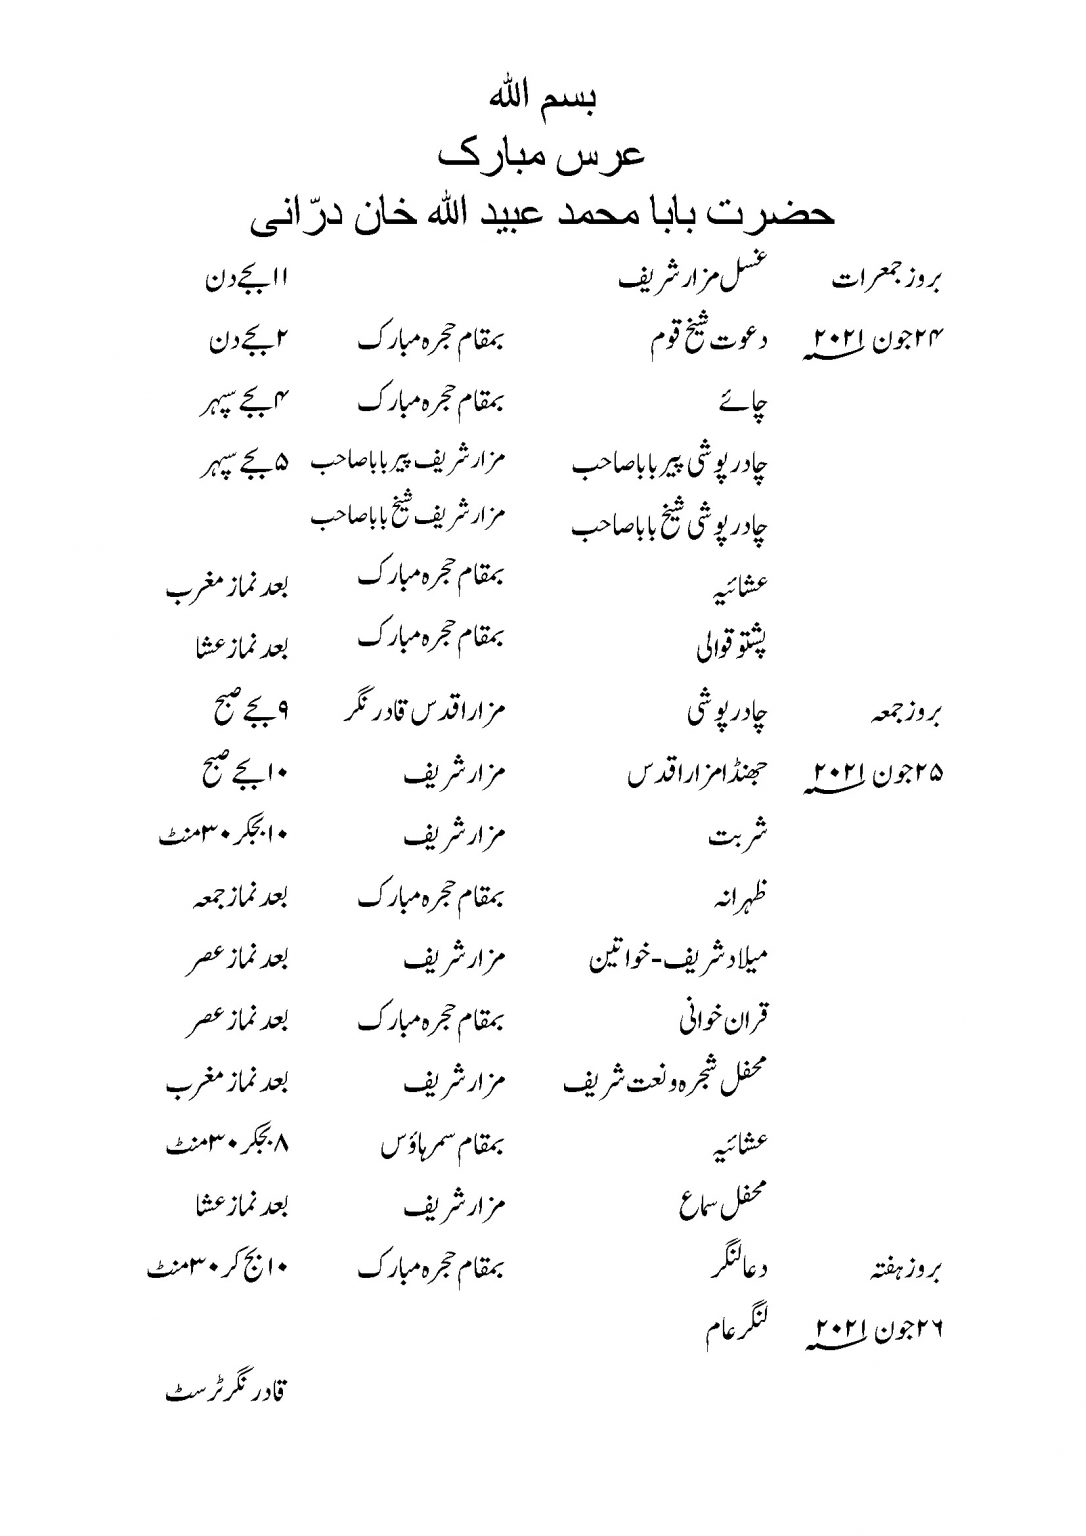 بسم اللہ
عرس مبارک
حضرت بابا محمد عبید اللہ خان درّانی
بروز جمعرات غسل مزار شریف ۱۱ بجے دن
۲۴ جون ۲۰۲۱؁ دعوت شیخ قوم بمقام حجرہ مبارک ۲ بجے دن
چائے بمقام حجرہ مبارک ۴ بجے سپہر
چادر پوشی پیر بابا صاحب مزار شریف پیر بابا صاحب ۵ بجے سپہر
چادر پوشی شیخ بابا صاحب مزار شریف شیخ بابا صاحب
عشائیہ بمقام حجرہ مبارک بعد نماز مغرب
پشتو قوالی بمقام حجرہ مبارک بعد نماز عشا
بروز جمعہ چادر پوشی مزار اقدس قادر نگر ۹ بجے صبح
۲۵ جون ۲۰۲۱؁ جھنڈا مزار اقدس مزار شریف ۱۰ بجے صبح
شربت مزار شریف ۱۰ بجکر ۳۰ منٹ
ظہرانہ بمقام حجرہ مبارک بعد نماز جمعہ
میلاد شریف - خواتین مزار شریف بعد نماز عصر
قران خوانی بمقام حجرہ مبارک بعد نماز عصر
محفل شجرہ و نعت شریف مزار شریف بعد نماز مغرب
عشائیہ بمقام سمر ہاؤس ۸ بجکر ۳۰ منٹ
محفل سماع مزار شریف بعد نماز عشا
بروز ہفتہ دعا لنگر بمقام حجرہ مبارک ۱۰ بج کر ۳۰ منٹ
۲۶ جون ۲۰۲۱؁ لنگر عام
قادر نگر ٹرسٹ